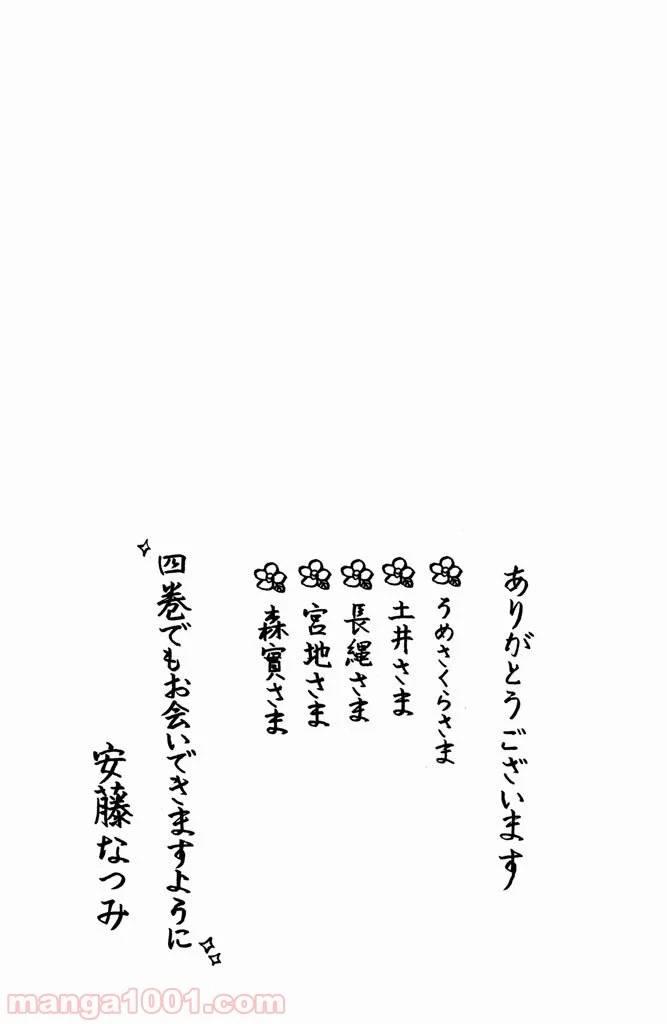 ありがとうございます
うめさくらさま
土井さま
長縄さま
宮地さま
森實さま
四巻でもお会いできますように
安藤なつみ
manga1001.com